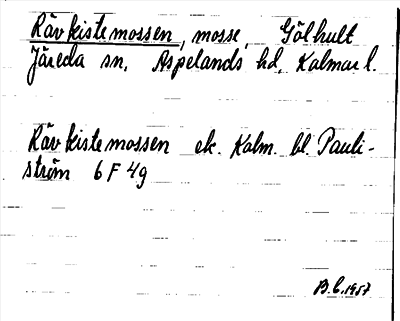 Rävkistemossen, mosse, Gölhult
Järeda sn, Aspelands hd, Kalmar l.
Rävkistemossen ek. Kalm. bl. Pauli-
ström 6 F 4g
B.C. 1957